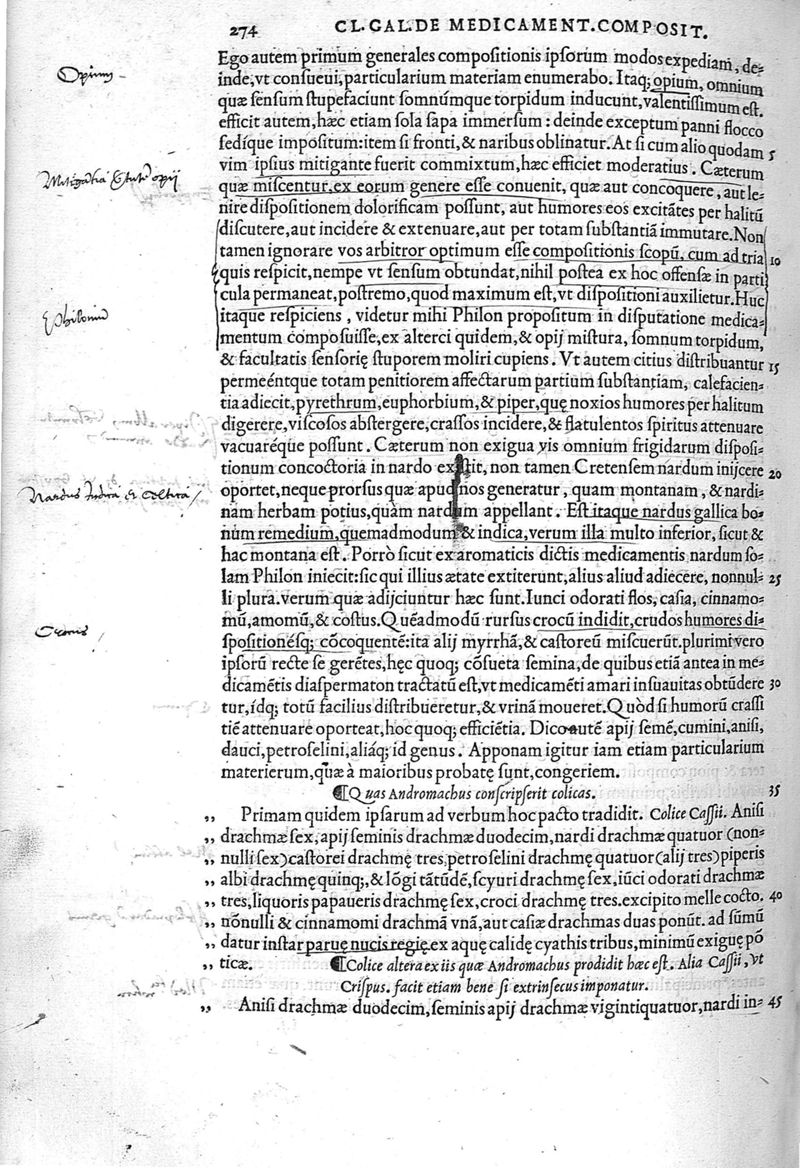 274 CL. GAL. DE MEDICAMENT. COMPOSIT.
Ego autem primum generales compositionis ipsorum modos expediam, de⸗
inde, vt consueui, particularium materiam enumerabo. Itaq; opium, omnium
Opium
quæ sensum stupefaciunt somnúmque torpidum inducunt, valentissimum est.
efficit autem, hæc etiam sola sapa immersum: deinde exceptum panni flocco
sedíque impositum: item si fronti, & naribus oblinatur. At si cum alio quodam 5
vim ipsius mitigante fuerit commixtum, hæc efficiet moderatius. Cæterum
quæ miscentur, ex eorum genere esse conuenit, quæ aut concoquere, aut le⸗
nire dispositionem dolorificam possunt, aut humores eos excitātes per halitū
discutere, aut incidere & extenuare, aut per totam substantiā immutare. Non
tamen ignorare vos arbitror optimum esse compositionis scopū, cum ad tria 10
quis respicit, nempe vt sensum obtundat, nihil postea ex hoc offensæ in parti
cula permaneat, postremo, quod maximum est, vt dispositioni auxilietur. Huc
itaque respiciens, videtur mihi Philon propositum in disputatione medica⸗
mentum composuisse, ex alterci quidem, & opij mistura, somnum torpidum,
& facultatis sensorię stuporem moliri cupiens. Vt autem citius distribuantur 15
permeéntque totam penitiorem affectarum partium substantiam, calefacien⸗
tia adiecit, pyrethrum, euphorbium, & piper, quę noxios humores per halitum
digerere, viscosos abstergere, crassos incidere, & flatulentos spiritus attenuare
vacuaréque possunt. Cæterum non exigua vis omnium frigidarum disposi⸗
tionum concoctoria in nardo existit, non tamen Cretensem nardum inijcere 20
oportet, neque prorsus quæ apud nos generatur, quam montanam, & nardi⸗
Nardus Indica et Celtica
nam herbam potius, quàm nardum appellant. Est itaque nardus gallica bo⸗
num remedium, quemadmodum & indica, verum illa multo inferior, sicut &
hac montana est. Porrò sicut ex aromaticis dictis medicamentis nardum so⸗
lam Philon iniecit: sic qui illius ætate extiterunt, alius aliud adiecere, nonnul⸗ 25
li plura. verum quæ adijciuntur hæc sunt. Iunci odorati flos, casia, cinnamo⸗
mū, amomū, & costus. Quēadmodū rursus crocū indidit, crudos humores di⸗
spositionésq; cōcoquentē: ita alij myrrhā, & castoreū miscuerūt. plurimi vero
ipsorū recte se gerētes, hęc quoq; cōsueta semina, de quibus etiā antea in me⸗
dicamētis diaspermaton tractatū est, vt medicamēti amari insuauitas obtūdere 30
tur, ídq; totū facilius distribueretur, & vrinā moueret. Quòd si humorū crassi
tiē attenuare oporteat, hoc quoq; efficiētia. Dico autē apij semē, cumini, anisi,
dauci, petroselini, aliáq; id genus. Apponam igitur iam etiam particularium
materierum, quæ à maioribus probatę sunt, congeriem.
¶ Quas Andromachus conscripserit colicas. 35
,, Primam quidem ipsarum ad verbum hoc pacto tradidit. Colice Cassii. Anisi
,, drachmæ sex, apij seminis drachmæ duodecim, nardi drachmæ quatuor (non⸗
,, nulli sex) castorei drachmę tres, petroselini drachmę quatuor (alij tres) piperis
,, albi drachmę quinq;, & lōgi tātūdē, scyuri drachmę sex, iūci odorati drachmæ
,, tres, liquoris papaueris drachmę sex, croci drachmę tres. excipito melle cocto. 40
,, nōnulli & cinnamomi drachmā vnā, aut casiæ drachmas duas ponūt. ad sūmū
,, datur instar paruę nucis regię. ex aquę calidę cyathis tribus, minimū exiguę pō
,, ticæ. ¶ Colice altera ex iis quæ Andromachus prodidit hæc est. Alia Cassii, vt
Crispus. facit etiam bene si extrinsecus imponatur.
,, Anisi drachmæ duodecim, seminis apij drachmæ vigintiquatuor, nardi in⸗ 45